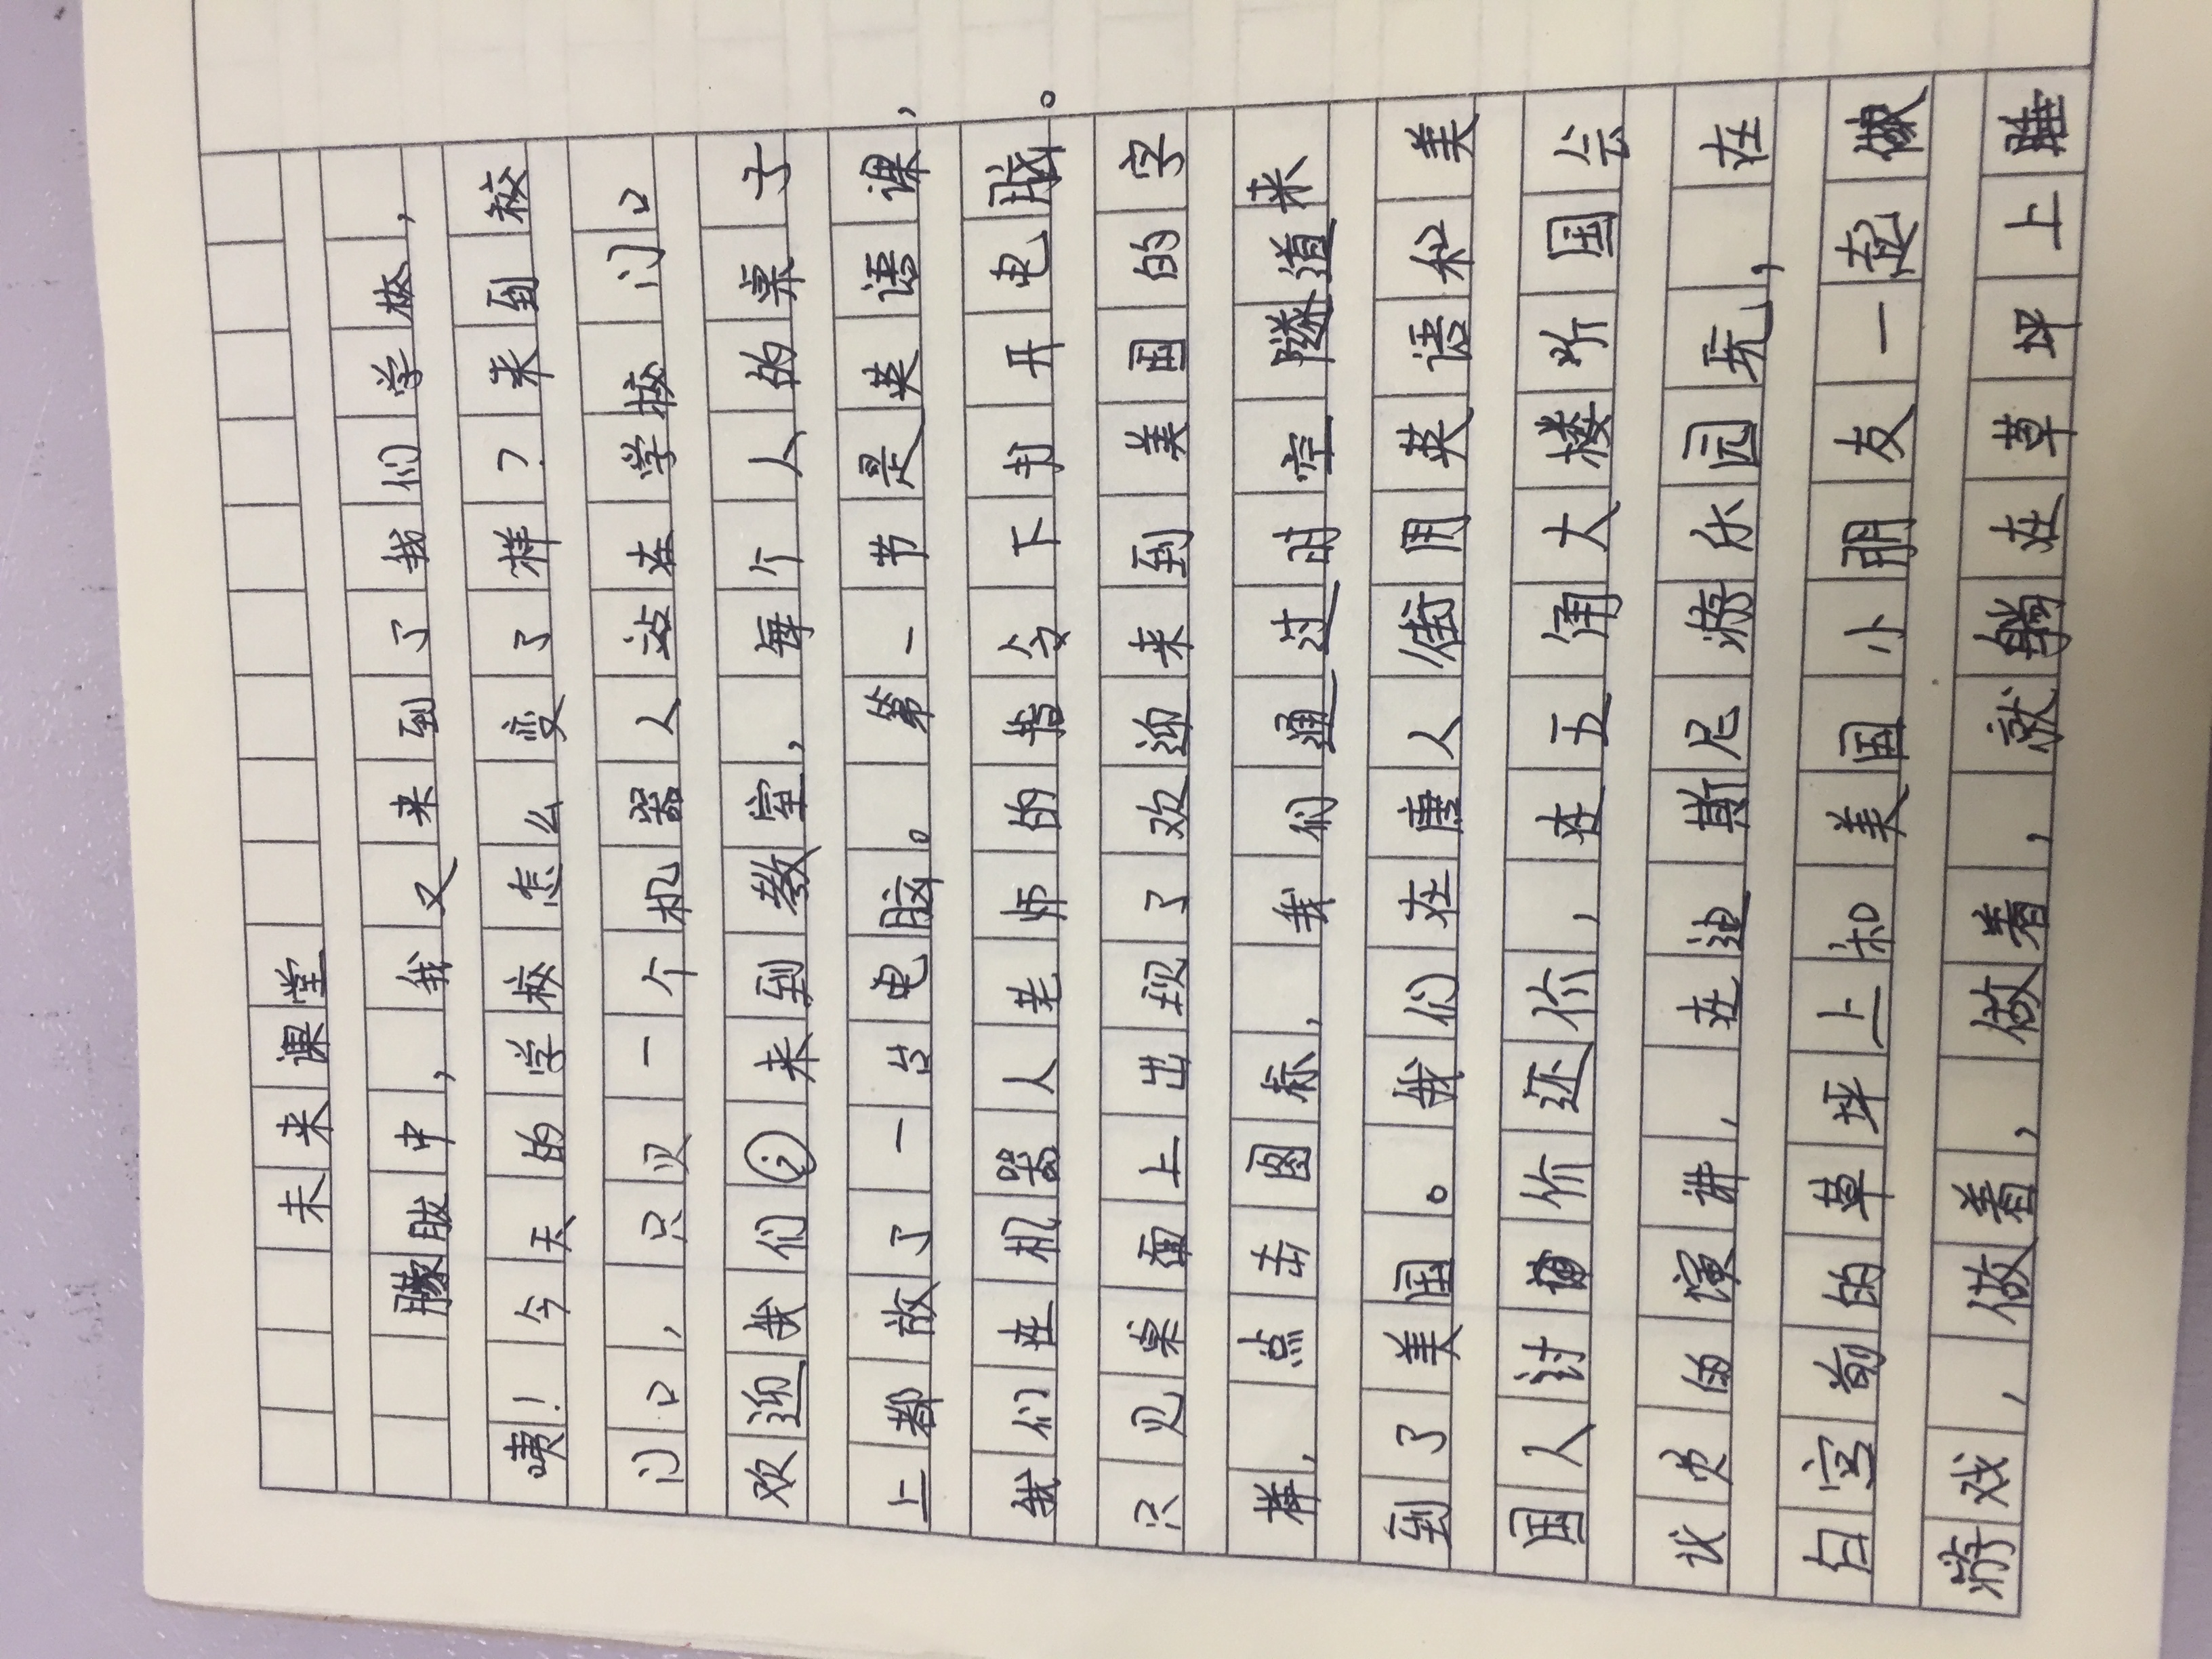 未来课堂
朦胧中，我又来到了我们学校，
咦！今天的学校怎么变了样？来到校
门口，只见一个机器人站在学校门口
欢迎我们 来到教室，每个人的桌子
上都放了一台电脑。第一节是英语课，
我们在机器人老师的指令下打开电脑。
只见桌面上出现了欢迎来到美国的字
样，点击图标，我们通过时空隧道来
到了美国。我们在唐人街用英语和美
国人讨价还价，在五角大楼听国会
议员的演讲，在迪斯尼游乐园玩，在
白宫前的草坪上和美国小朋友一起做
游戏，做着，做着，就躺在草坪上睡